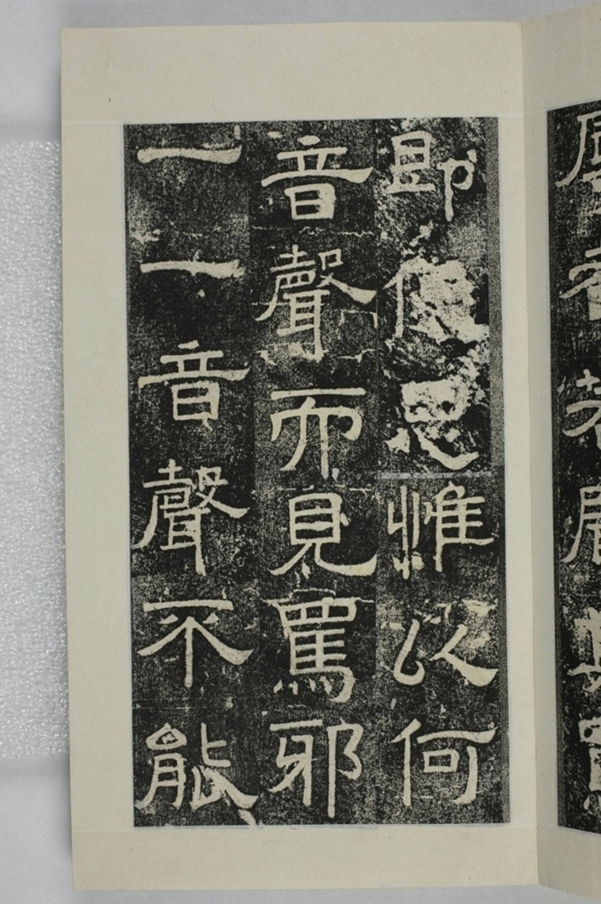 即便思惟以何
音聲而見罵邪
一一音聲不能